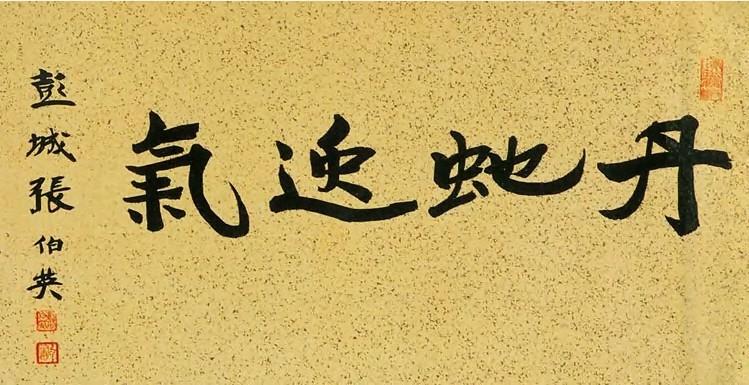 丹虵逸氣
彭城張伯英